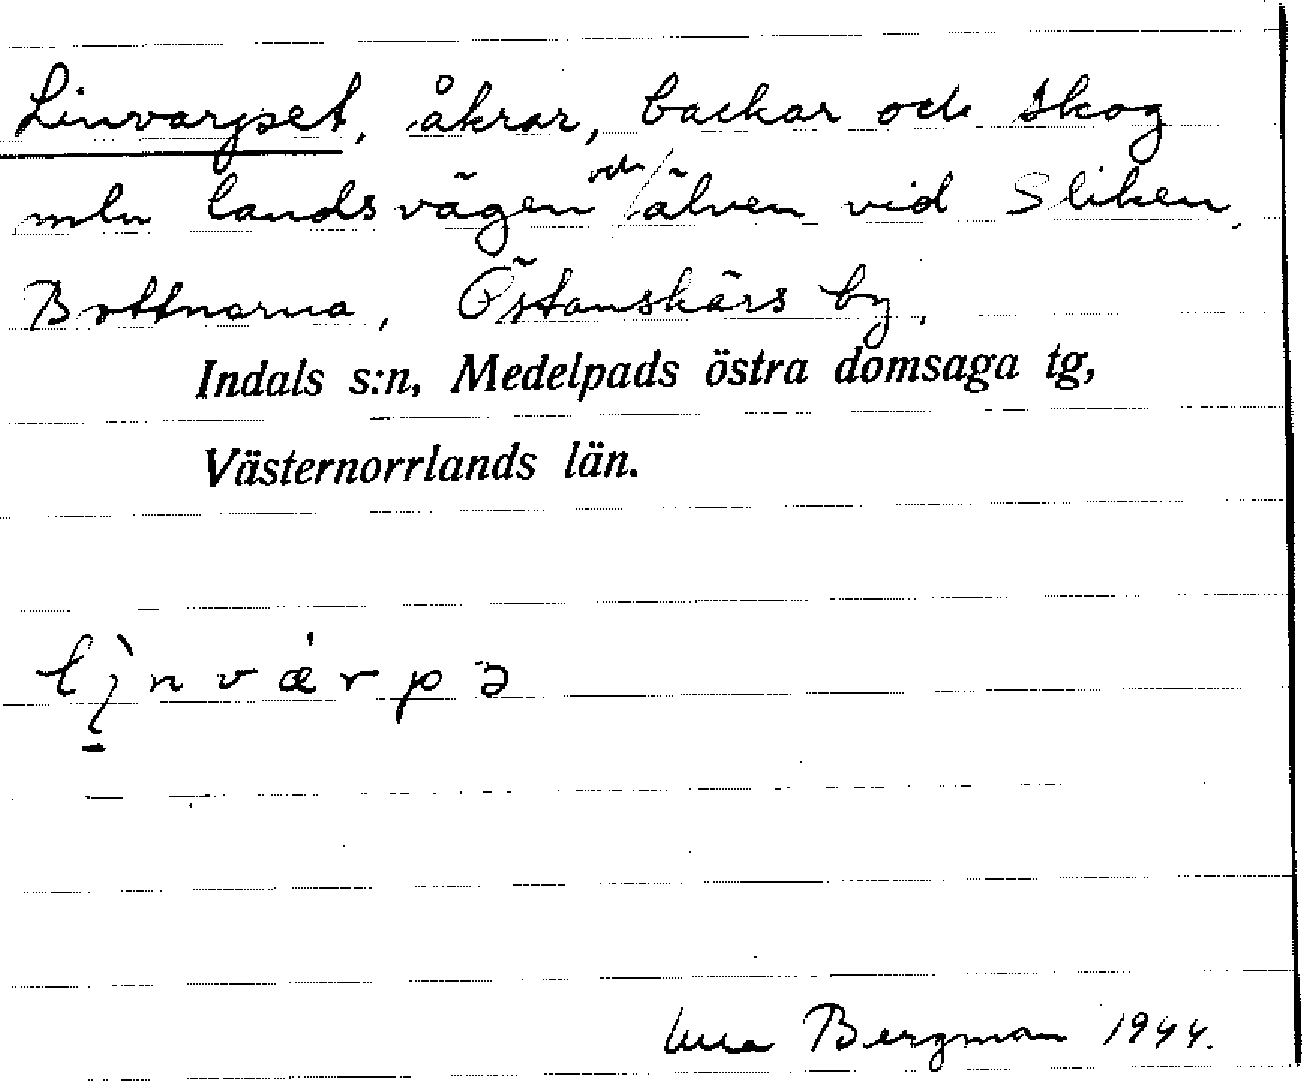 Linvarpset, åkrar, backar och skog
mln landsvägen och älven vid Sliken.
Bottnarna, Östanskärs by.
Indals s:n, Medelpads östra domsaga tg,
Västernorrlands län.
Bergman 1944.